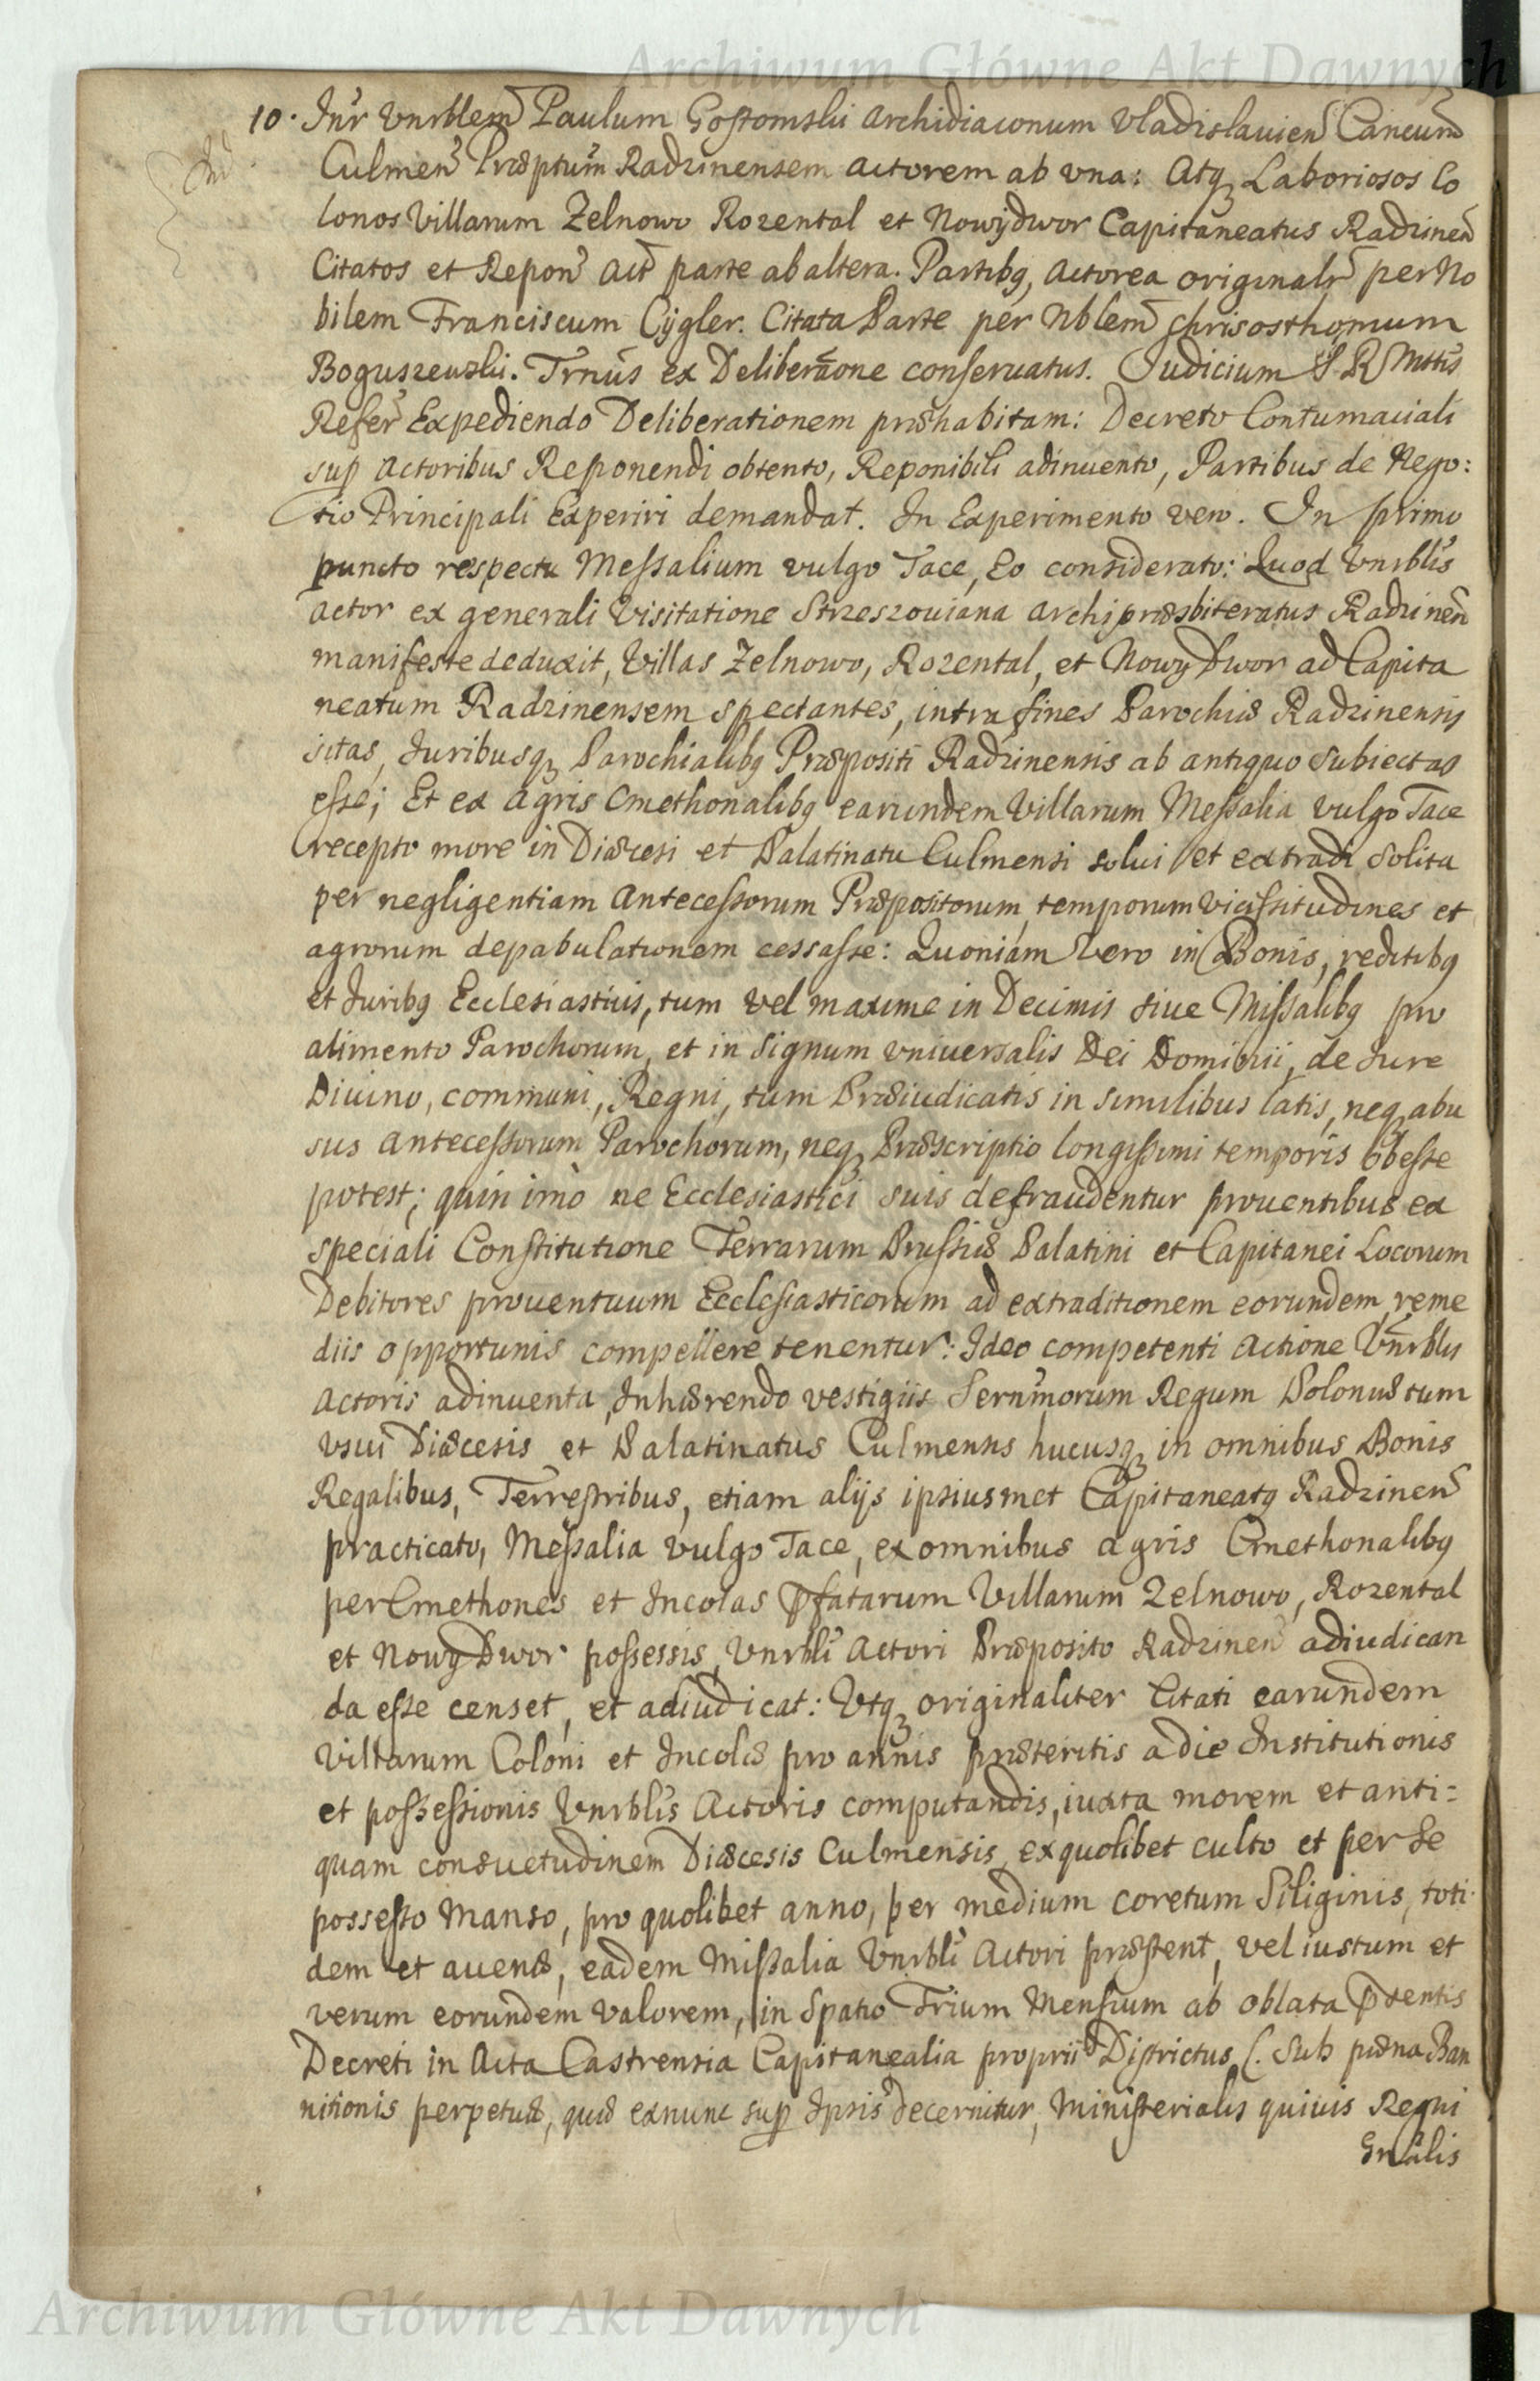 Archiwum Główne Akt Dawnych
10. Inr̃ Vnrblem̃ Paulum Gostomski Archidiaconum Vladislauien̄ Cancum̄
Ind
Culmen̄ Præptum̄ Radzinensem Actorem ab vna: Atq₃ Laboriosos Co
lonos Villarum Zelnowo Rozental et Nowÿdwor Capitaneatus Radzinen̄
Citatos et Repon̄ Act̄ parte ab altera. Partibq₃ Actorea originalr̄ per No
bilem Franciscum Cÿgler. Citata Parte per Nblem̄ Chrisosthomum
Boguszewski. Trnūs ex Deliberāone conseruatus. Judicium S. R. Mttis
Refer̄ Expediendo Deliberationem præhabitam: Decreto Contumaciali
sup̄ Actoribus Reponendi obtento, Reponibili adinuento, Partibus de Nego:
tio Principali Experiri demandat. In Experimento vero. In primo
puncto respectu Messalium vulgo Tace, Eo considerato: Quod Vnrblis
Actor ex generali Visitatione Strzeszouiana Archipræsbiteratus Radzinen̄
manifeste deduxit, Villas Zelnowo, Rozental, et NowyDwor ad Capita
neatum Radzinensem spectantes, intra fines Parochiæ Radzinensis
sitas, Juribusq₃ Parochialibq Præpositi Radzinensis ab antiquo subiectas
esse; Et ex Agris Cmethonalibq earundem Villarum Messalia vulgo Tace
recepto more in Diæcesi et Palatinatu Culmensi solui et extradi solita
per negligentiam Antecessorum Præpositorum, temporum vicissitudines et
agrorum depabulationem cessasse: Quoniam vero in Bonis, reditibq
et Juribq Ecclesiasticis, tum vel maxime in Decimis siue Missalibq pro
alimento Parochorum, et in signum vniuersalis Dei Dominii, de Jure
Diuino, communi, Regni, tum Præiudicatis in similibus latis, neq₃ abu
sus Antecessorum Parochorum, neq₃ Præscriptio longissimi temporis obesse
potest; quin imò ne Ecclesiastici suis defraudentur prouentibus ex
speciali Constitutione Terrarum Prussiæ Palatini et Capitanei Locorum
Debitores prouentuum Ecclesiasticorum ad extraditionem eorundem reme
diis opportunis compellere tenentur: Ideo competenti Actione Vnrblis
Actoris adinuenta, Inhærendo vestigiis Sernm̄orum Regum Poloniæ tum
vsui Diæcesis et Palatinatus Culmensis hucusq₃ in omnibus Bonis
Regalibus, Terrestribus, etiam alijs ipsiusmet Capitaneatq Radzinen̄
practicato, Messalia vulgo Tace, ex omnibus agris Cmethonalibq
per Cmethones et Incolas p̄fatarum Villarum Zelnowo, Rozental
et NowyDwor possessis, Vnrbli Actori Præposito Radzinen̄ adiudican
da esse censet, et adiudicat: Vtq₃ originaliter Citati earundem
Villarum Coloni et Incolæ pro annis præteritis a die Institutionis
et possessionis Vnrblis Actoris computandis, iuxta morem et anti=
quam consuetudinem Diæcesis Culmensis, ex quolibet culto et per se
possesso Manso, pro quolibet anno, per medium coretum siliginis, toti
dem et auenæ, eadem Missalia Vnrbli Actori præstent, vel iustum et
verum eorundem valorem, in spatio Trium Mensium ab oblata p̄sentis
Decreti in Acta Castrensia Capitanealia proprii Districtus (. sub pæna Ban
nitionis perpetuæ, quæ exnunc sup̄ Ipsis decernitur, Ministerialis quiuis Regni
Gnālis
Archiwum Główne Akt Dawnych